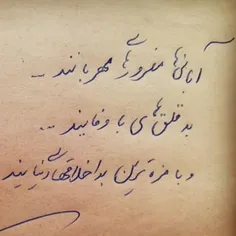 آبانی‌ها مغرورهای مهربانند ..
بدقلق‌های باوفایند ...
و بامزه‌ترین بداخلاقهای دنیایند